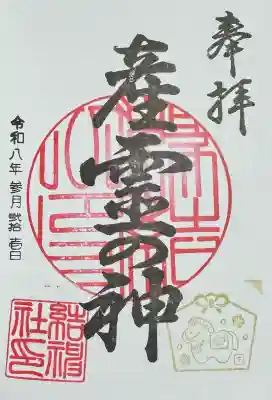 奉拝
産霊の神
令和八年参月弐拾壱日
結神社印